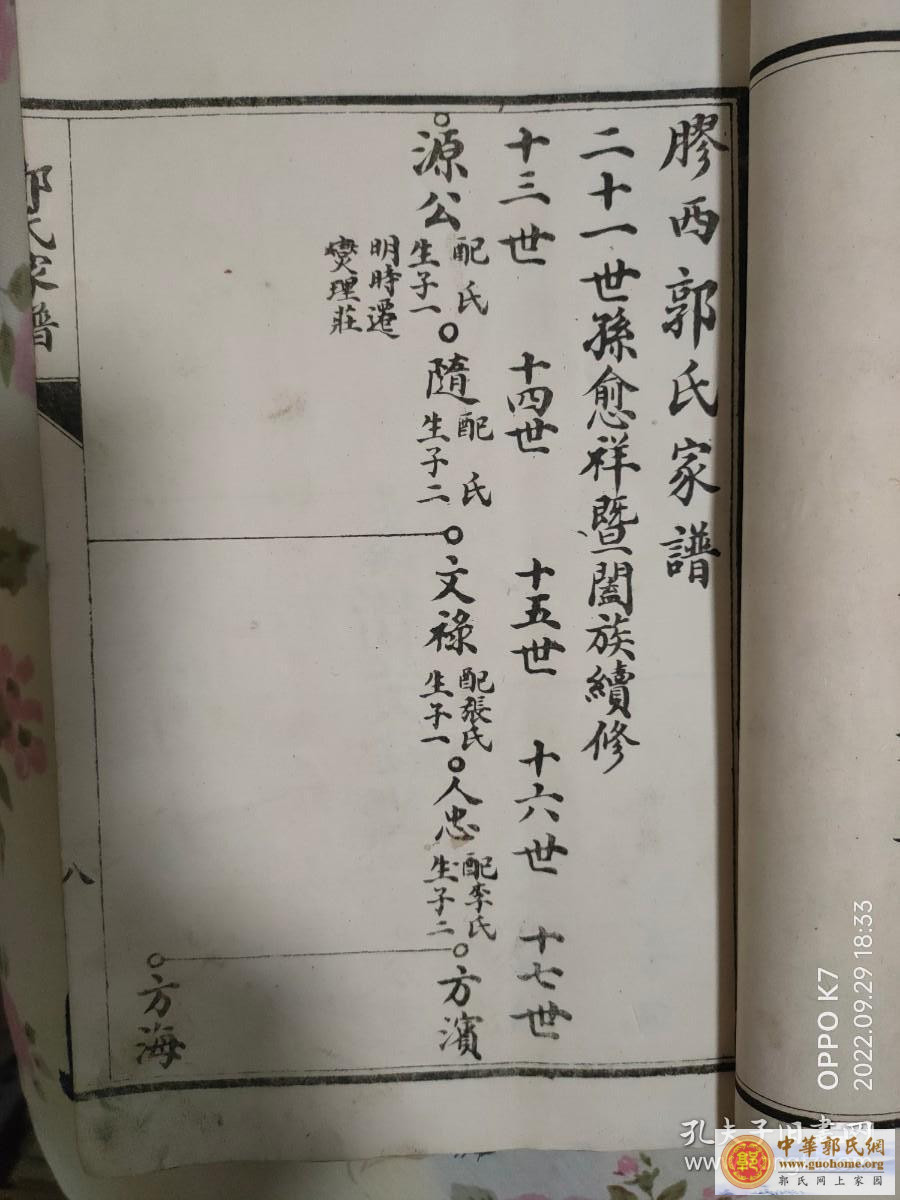 膠西郭氏家譜
二十一世孫愈祥暨闔族續修
十三世 十四世 十五世 十六世 十七世
源公 配 氏 生子一 明時遷 燮理莊
隨 配 氏 生子二
文祿 配張氏 生子一
人忠 配李氏 生子二
方濱
方海
郭氏家譜
八
OPPO K7
2022.09.29 18:33
孔夫子旧書网
中華郭氏網
www.guohome.org
郭氏网上家园